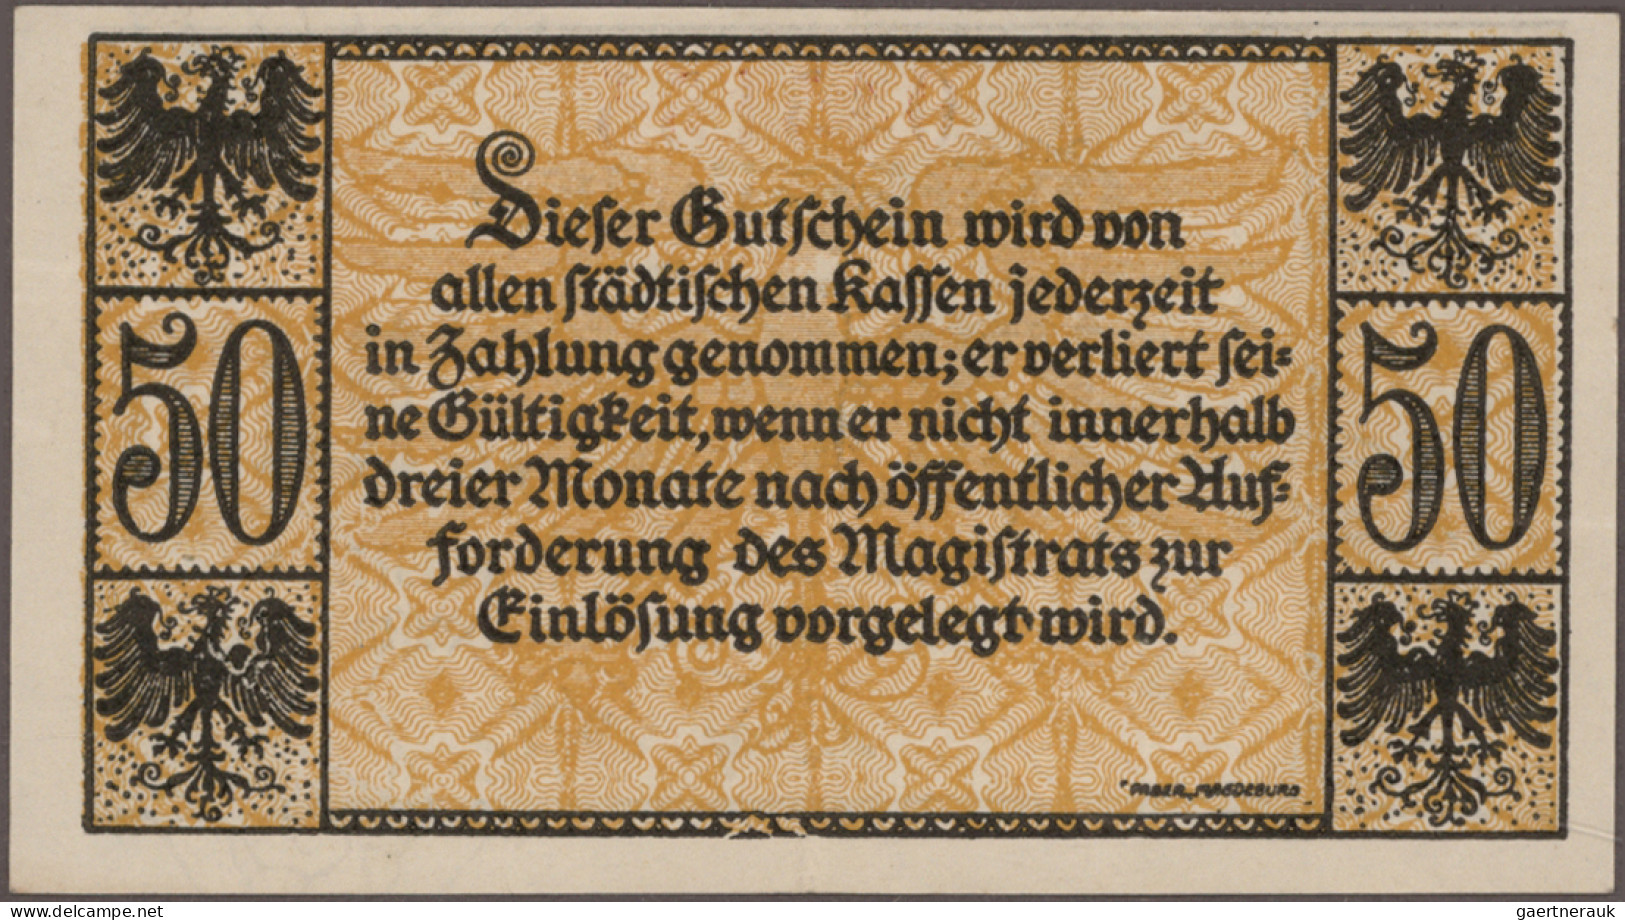 Dieser Gutschein wird von
allen städtischen Kassen jederzeit
in Zahlung genommen; er verliert sei=
ne Gültigkeit, wenn er nicht innerhalb
dreier Monate nach öffentlicher Auf=
forderung des Magistrats zur
Einlösung vorgelegt wird.
50
50
FABER, MAGDEBURG
www.delcampe.net
gaertnerauk